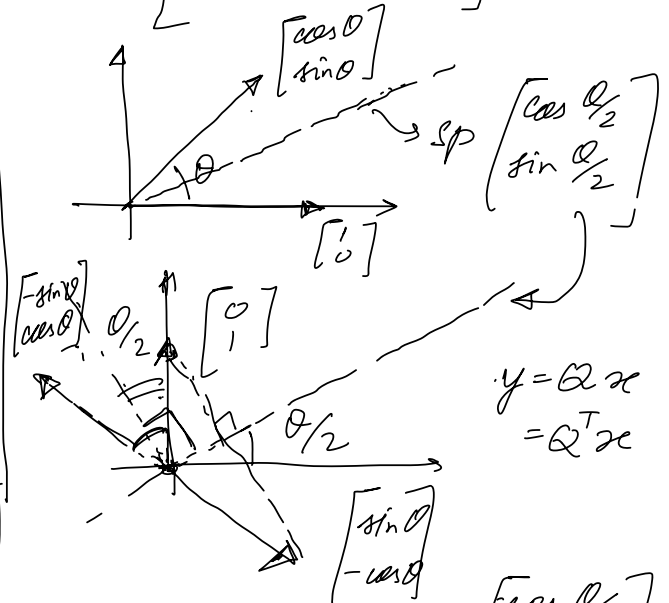 [cosθ
sinθ]
θ
sp [cos θ/2
sin θ/2]
[1
0]
[-sinθ
cosθ]
θ/2
[0
1]
θ/2
y = Qx
= Qᵀx
[sinθ
-cosθ]